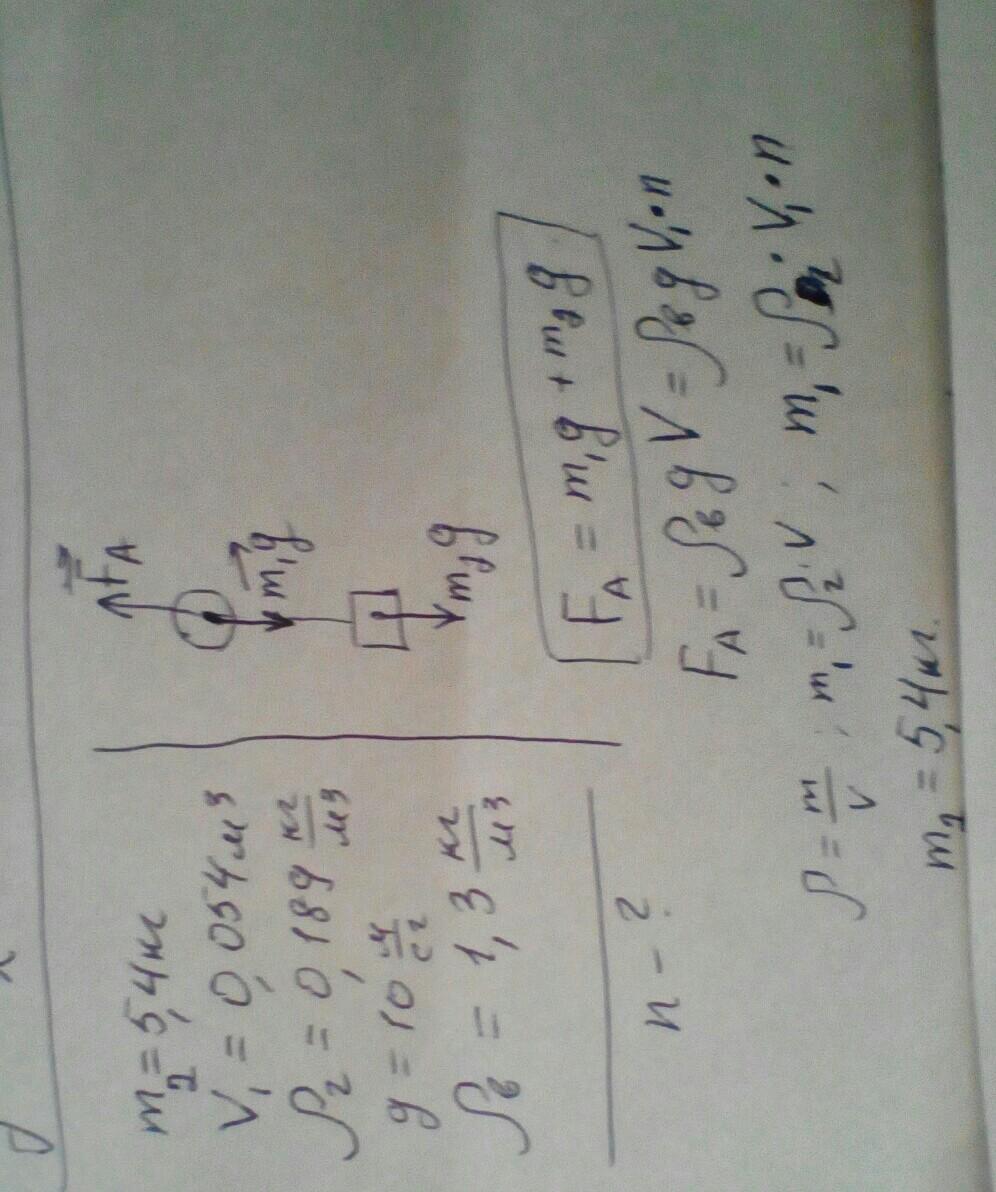 m₂ = 5,4 кг
V₁ = 0,054 м³
ρ₂ = 0,189 кг/м³
g = 10 м/с²
ρв = 1,3 кг/м³
n - ?
F⃗A
m₁g⃗
m₂g
FA = m₁g + m₂g
FA = ρв g V = ρв g V₁ · n
ρ = m/V ; m₁ = ρ₂ · V ; m₁ = ρ₂ · V₁ · n
m₂ = 5,4 кг.